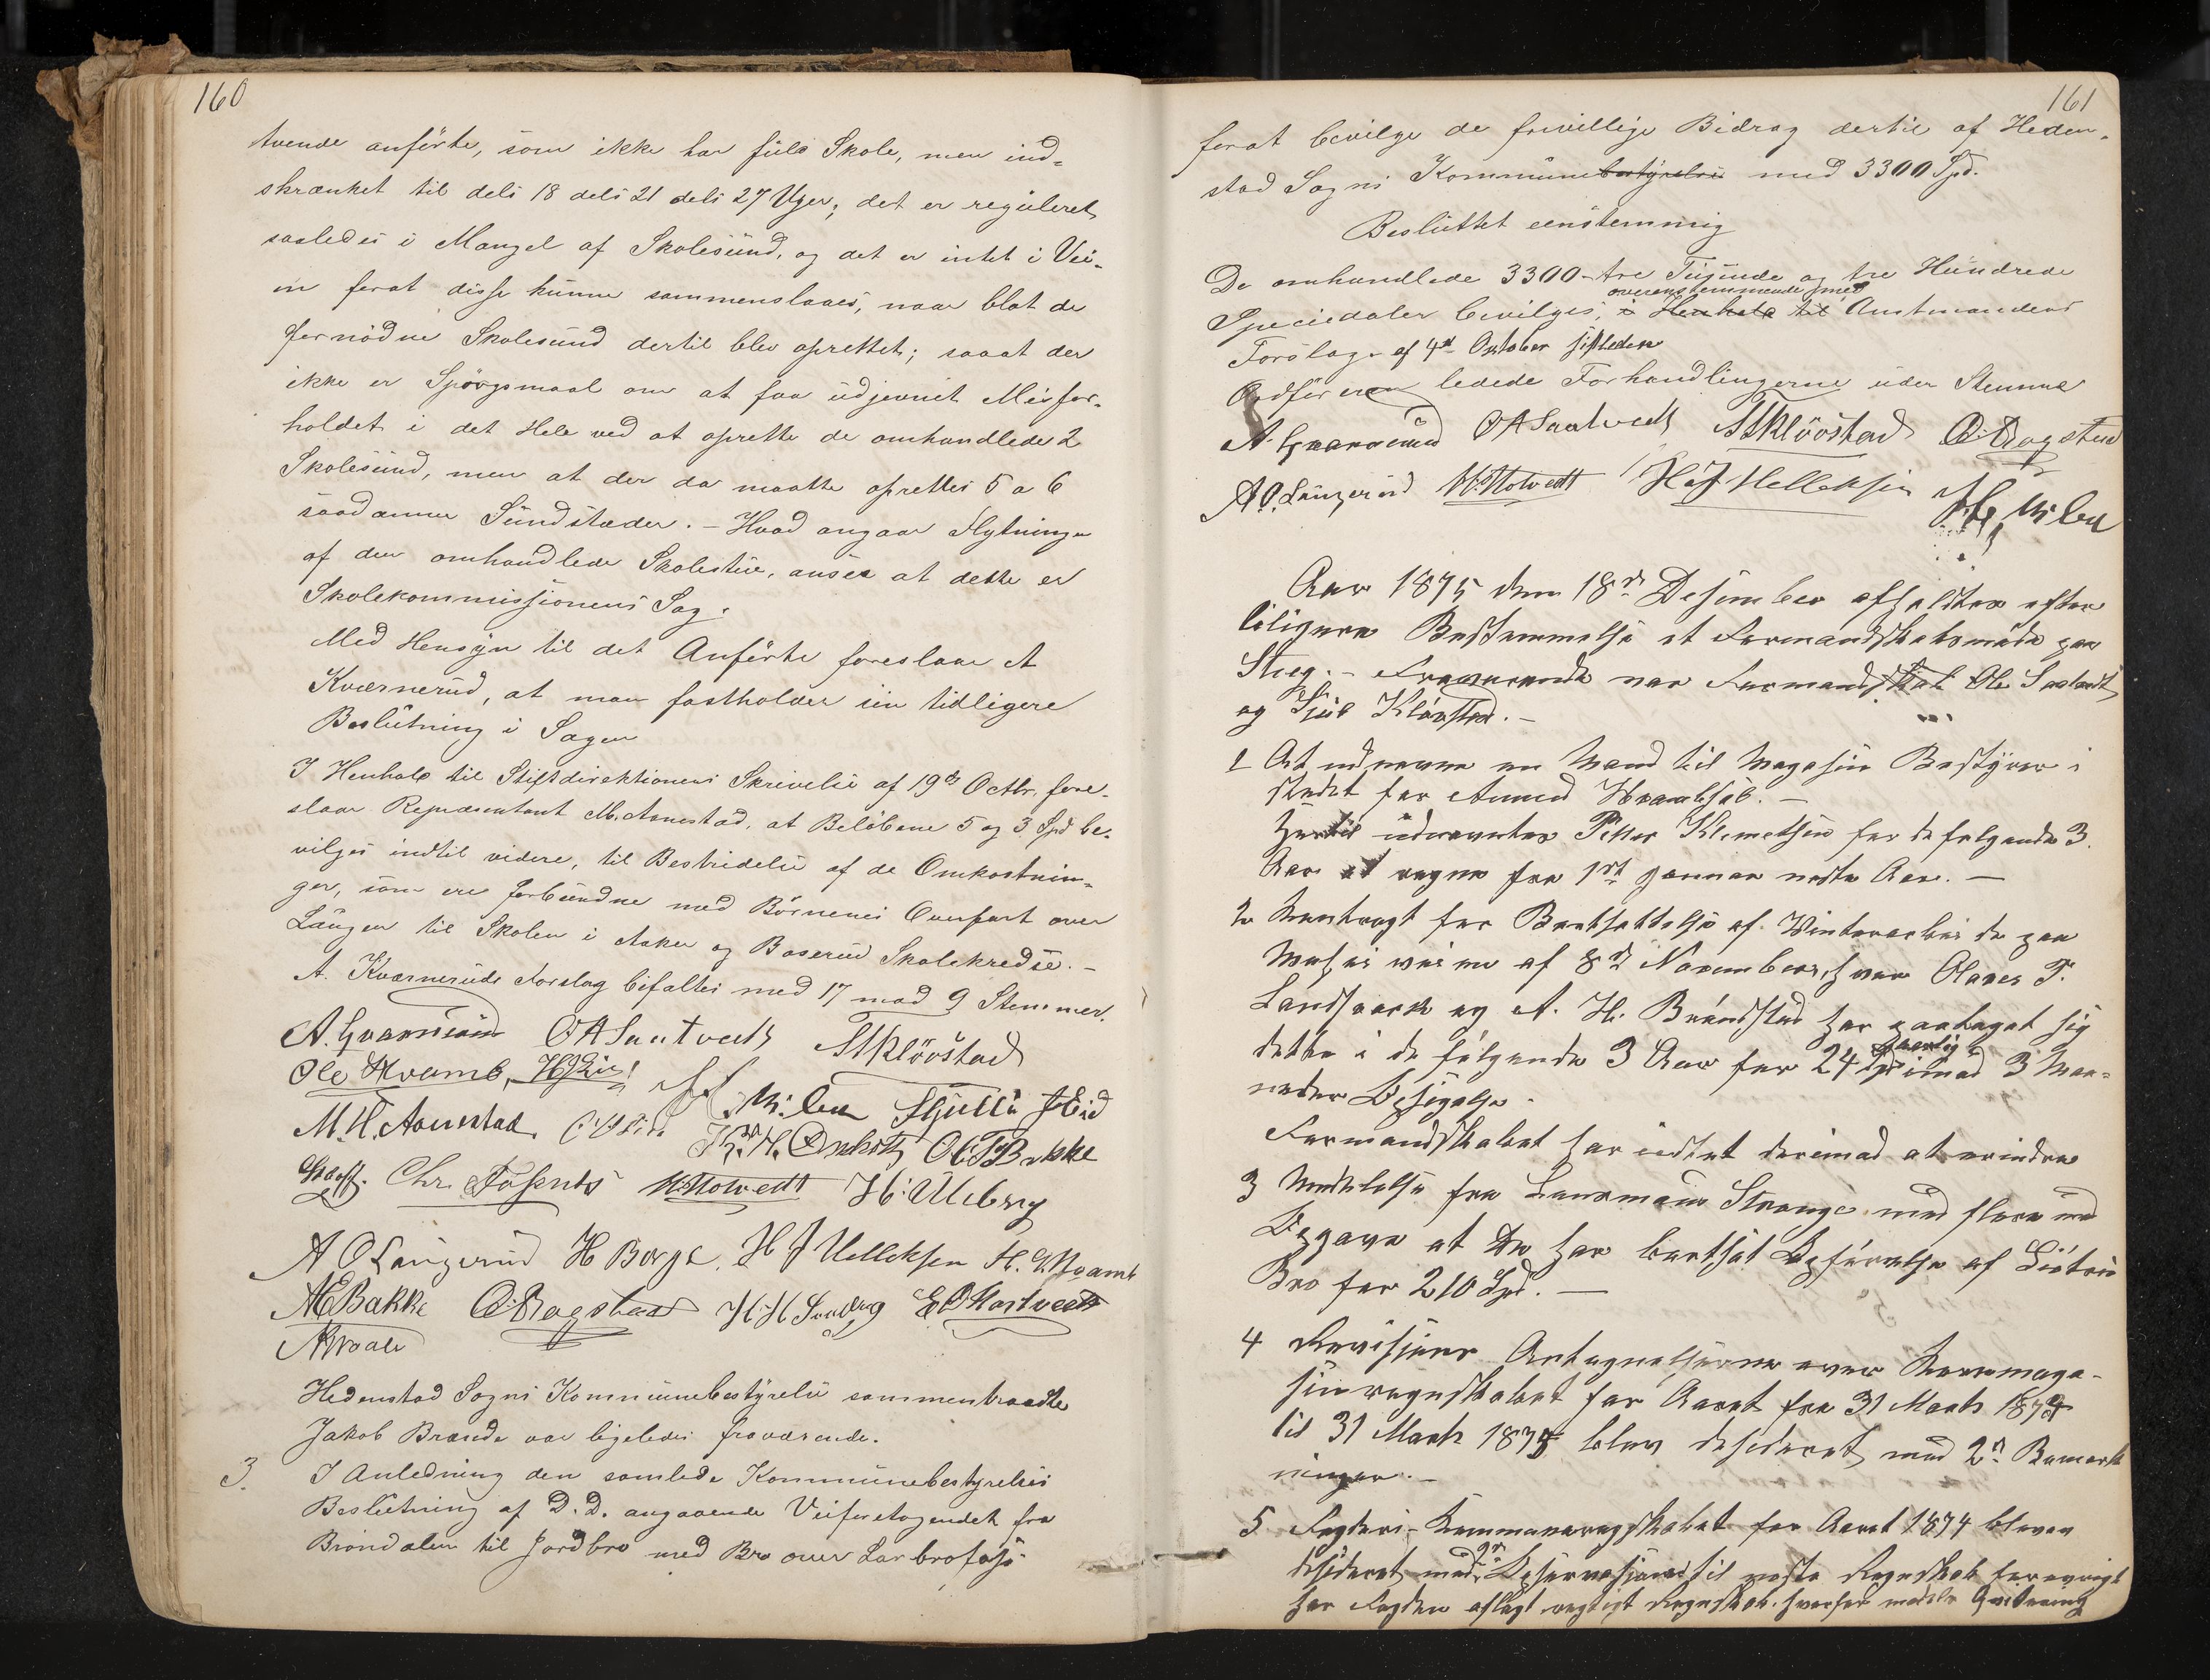 160
tvende anførte, som ikke har fuld Skole, men ind-
skrænket til dels 18 dels 21 dels 27 Uger; det er reguleret
saaledes i Mangel af Skolesund, og det er intet i Vei-
en forat disse kunne sammenslaaes, naar blot de
fornødne Skolesund dertil blev oprettet; saaat der
ikke er Spørgsmaal om at faa udjevnet Misfor-
holdet i det Hele ved at oprette de omhandlede 2
Skolesund, men at der da maatte oprettes 5 a 6
saadanne Sundstæder. - Hvad angaar Flytningen
af den omhandlede Skolestue, ansees at dette er
Skolekommissionens Sag.
Med Hensyn til det Anførte foreslaar A
Kværnerud, at man fastholder sin tidligere
Beslutning i Sagen
I Henhold til Stiftdirektionens Skrivelse af 19de Octbr. fore-
slaar Repræsentant M. Aanestad, at Beløbene 5 og 3 Spd be-
vilges indtil videre, til Bestridelse af de Omkostnin-
ger, som ere forbundne med Børnenes Overfart over
Laugen til Skolen i Asker og Baserud Skolekredse. -
A. Kværneruds Forslag bifaltes med 17 mod 9 Stemmer.
A. Qvarnerud O A Saatvedt S T Kløvstad
Ole Hvamb, H Lie
Milen Skjulli Eid
M. H. Aanestad. Omholt O T Bakke
Chr. Fossnes H. Holtvedt H. Ulleberg
A O Laugerud H Borge. H J Helleksen H. Hvamb
A E Bakke O. Bagstad H. H. E O Hostvedt

Hedenstad Sogns Kommunebestyrelse sammentraadte
Jakob Brænde var ligeledes fraværende.
3. I Anledning den samlede Kommunebestyrelses
Beslutning af D. D. angaaende Veiforetagendet fra
Brøndalen til Jordbro med Bro over Larbrofoss
161
forat bevilge de frivillige Bidrag dertil af Heden-
stad Sogns Kommunebestyrelse med 3300 Spd.
Besluttet eenstemmig
De omhandlede 3300 - tre Tusinde og tre Hundrede
overensstemmende med
Speciedaler bevilges, i Henhold til Amtmandens
Forslag af 4de Oktober sistleden
Ordføreren ledede Forhandlingerne uden Stemme
A. Qvarnerud O A Saatvedt S T Kløvstad O. Bagstad
A. O. Laugerud H. Holtvedt H J Helleksen Milen
Aar 1875 den 18de Desember afholdtes efter
lovligere Bestemmelse et Formandskabsmøde paa
Stueg. - Fraværende var Formandskab Ole Saatvedt
og Sjul Kløvstad. -
1 At udnævne en Mand til Magasin Bestyrer i
stedet for Amund Hvambsal. -
Hertil udnævntes Petter Klemetsen for de følgende 3
Aar at regne fra 1ste Januar neste Aar. -
2 Kontragt for Bortsættelse af Vinterarbeide paa
af 8de November, hvor Olaves T.
Landsverk og A. H. Brændstad har paataget sig
aarlig
dette i de følgende 3 Aar for 24 Spd imod 3 Maa-
neders Opsigelse.
Formandskabet har indtet derimod at erindre
3 Meddelelse fra Lensmann Strange med flere med
Opgave at de har bortsat Opførelse af
Bro for 210 Spd. -
4 Revisions Antagnelserne over Kornmaga-
sinregnskabet for Aaret fra 31 Marts 1874
til 31 Marts 1875 blev desideret med 2de Bemærk
ninger. -
5. Fogderi-Kommuneregnskabet for Aaret 1874 bleven
desideret med 2de Observasjoner til neste Regnskab forøvrigt
har Fogden aflagt rigtigt Regnskab, hvorfor meddeles Qvitering